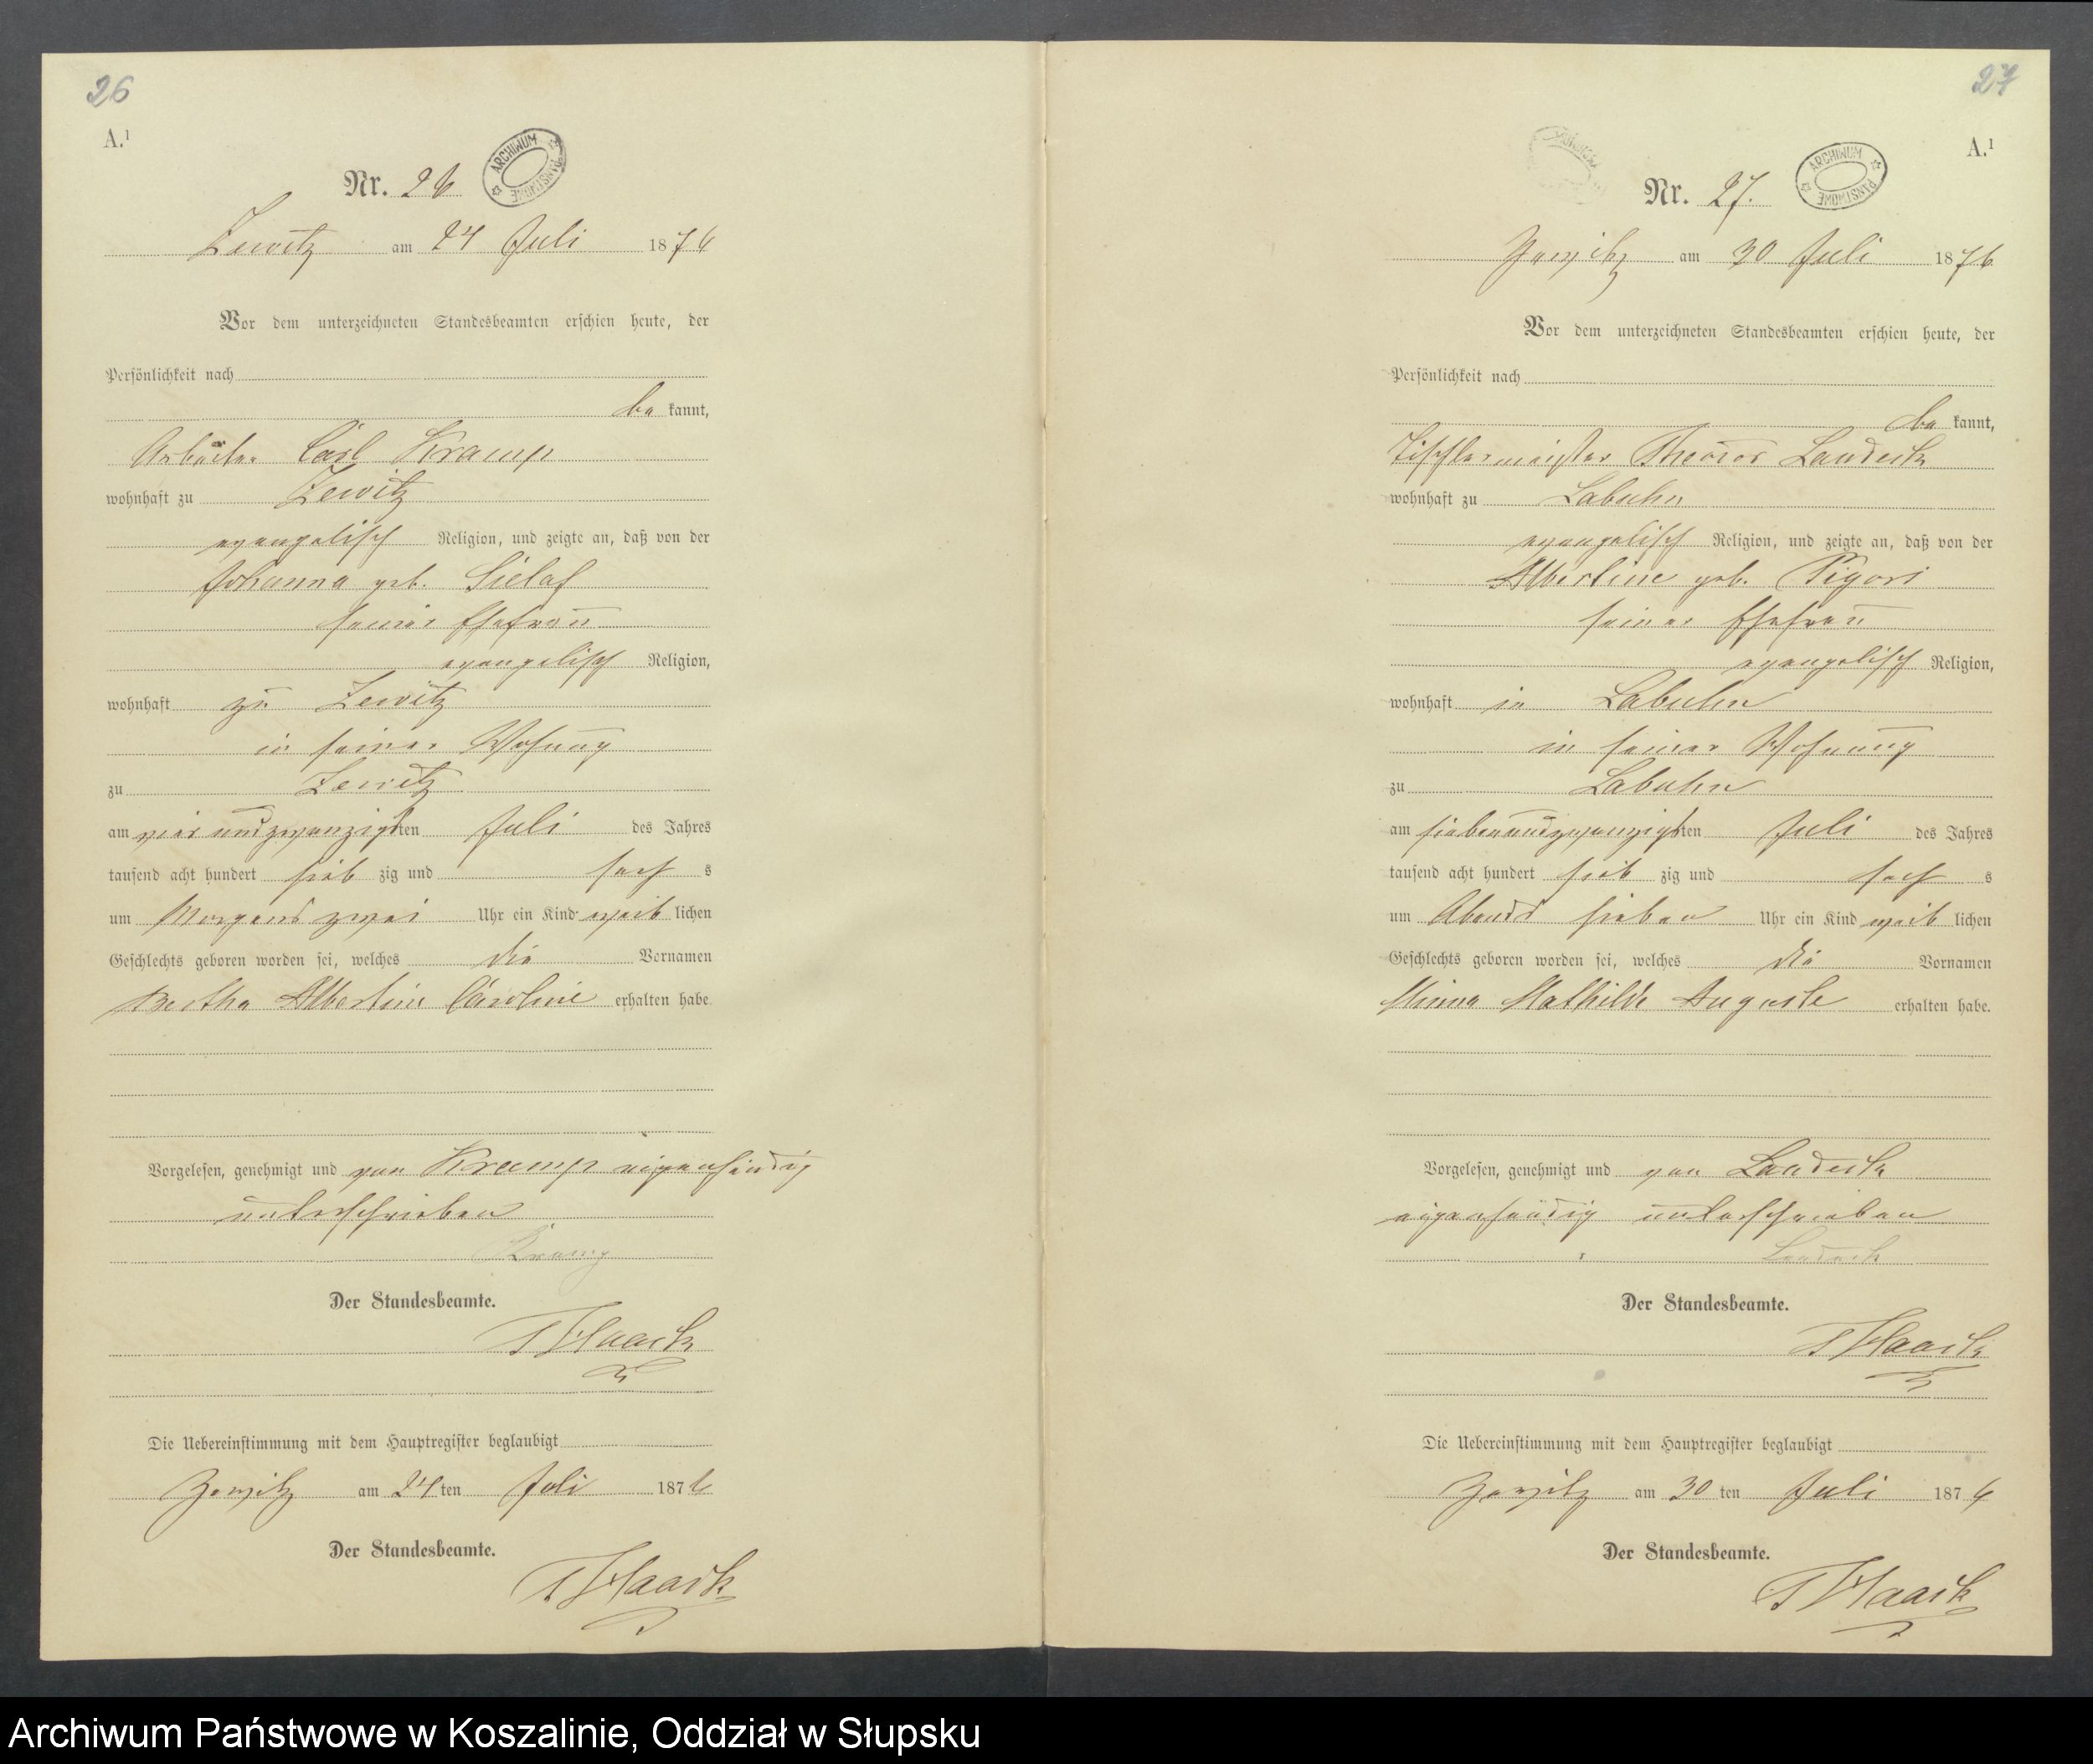 26
A.¹
ARCHIWUM PAŃSTWOWE
Nr. 26
Zewitz am 24 Juli 1876
Vor dem unterzeichneten Standesbeamten erschien heute, der
Persönlichkeit nach
be kannt,
Arbeiter Carl Kramp
wohnhaft zu Zewitz
evangelisch Religion, und zeigte an, daß von der
Johanna geb. Sielaf
seiner Ehefrau
evangelisch Religion,
wohnhaft zu Zewitz
in seiner Wohnung
zu Zewitz
am vier und zwanzigsten Juli des Jahres
tausend acht hundert sieb zig und sech s
um Morgens zwei Uhr ein Kind weib lichen
Geschlechts geboren worden sei, welches die Vornamen
Bertha Albertine Caroline erhalten habe.
Vorgelesen, genehmigt und von Kramp eigenhändig
unterschrieben
Kramp
Der Standesbeamte.
Haack
Die Uebereinstimmung mit dem Hauptregister beglaubigt
Zewitz am 24 ten Juli 1876
Der Standesbeamte.
Haack
27
A.¹
ARCHIWUM PAŃSTWOWE
Nr. 27.
Zewitz am 30 Juli 1876
Vor dem unterzeichneten Standesbeamten erschien heute, der
Persönlichkeit nach
be kannt,
Tischlermeister Theodor Landeck
wohnhaft zu Labuhn
evangelisch Religion, und zeigte an, daß von der
Albertine geb. Pigors
seiner Ehefrau
evangelisch Religion,
wohnhaft in Labuhn
in seiner Wohnung
zu Labuhn
am siebenundzwanzigsten Juli des Jahres
tausend acht hundert sieb zig und sech s
um Abends sieben Uhr ein Kind weib lichen
Geschlechts geboren worden sei, welches die Vornamen
Minna Mathilde Auguste erhalten habe.
Vorgelesen, genehmigt und von Landeck
eigenhändig unterschrieben
Landeck
Der Standesbeamte.
Haack
Die Uebereinstimmung mit dem Hauptregister beglaubigt
Zewitz am 30 ten Juli 1876
Der Standesbeamte.
Haack
Archiwum Państwowe w Koszalinie, Oddział w Słupsku